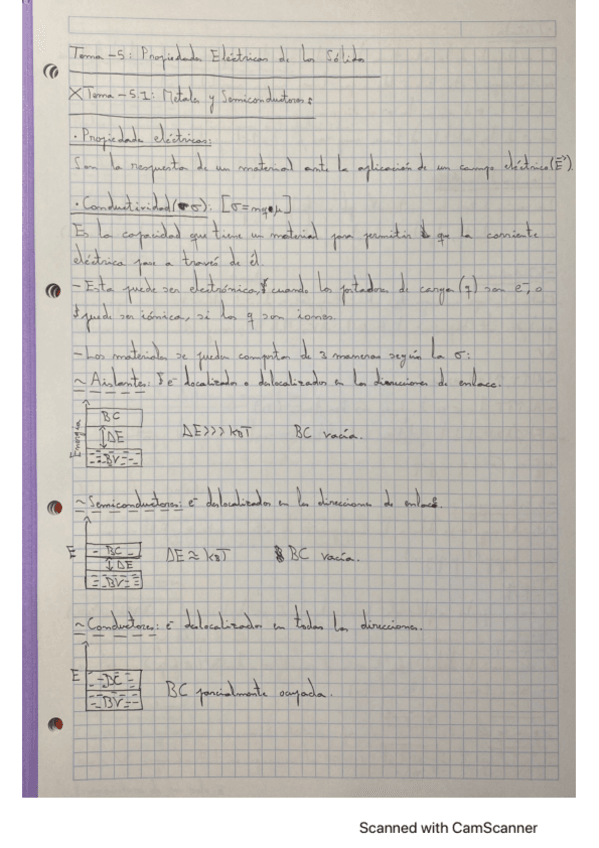 Tema-5: Propiedades Eléctricas de los Sólidos
X Tema-5.1: Metales y Semiconductores:
· Propiedades eléctricas:
Son la respuesta de un material ante la aplicación de un campo eléctrico (E⃗).
· Conductividad (σ): [σ=nqμ]
Es la capacidad que tiene un material para permitir que la corriente
eléctrica pase a través de él.
- Esta puede ser electrónica, cuando los portadores de carga (q) son e⁻, o
puede ser iónica, si los q son iones.
- Los materiales se pueden comportar de 3 maneras según la σ:
~ Aislantes: e⁻ localizados o deslocalizados en las direcciones de enlace.
Energía
BC
ΔE
BV
ΔE>>>k_BT BC vacía.
~ Semiconductores: e⁻ deslocalizados en las direcciones de enlace.
E
BC
ΔE
BV
ΔE≈k_BT BC vacía.
~ Conductores: e⁻ deslocalizados en todas las direcciones.
E
BC
BV
BC parcialmente ocupada.
Scanned with CamScanner